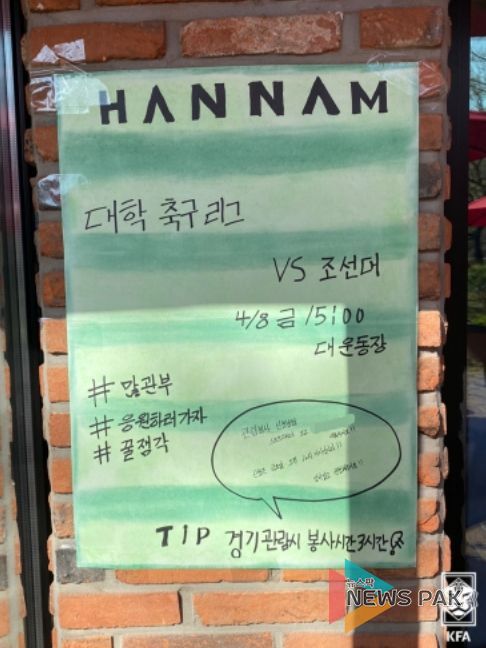 HANNAM
대학 축구 리그
VS 조선대
4/8 금 15:00
대운동장
# 많관부
# 응원하러가자
# 꿀잼각
TIP 경기관람시 봉사시간 3시간
뉴스팍
NEWS PAK
KFA